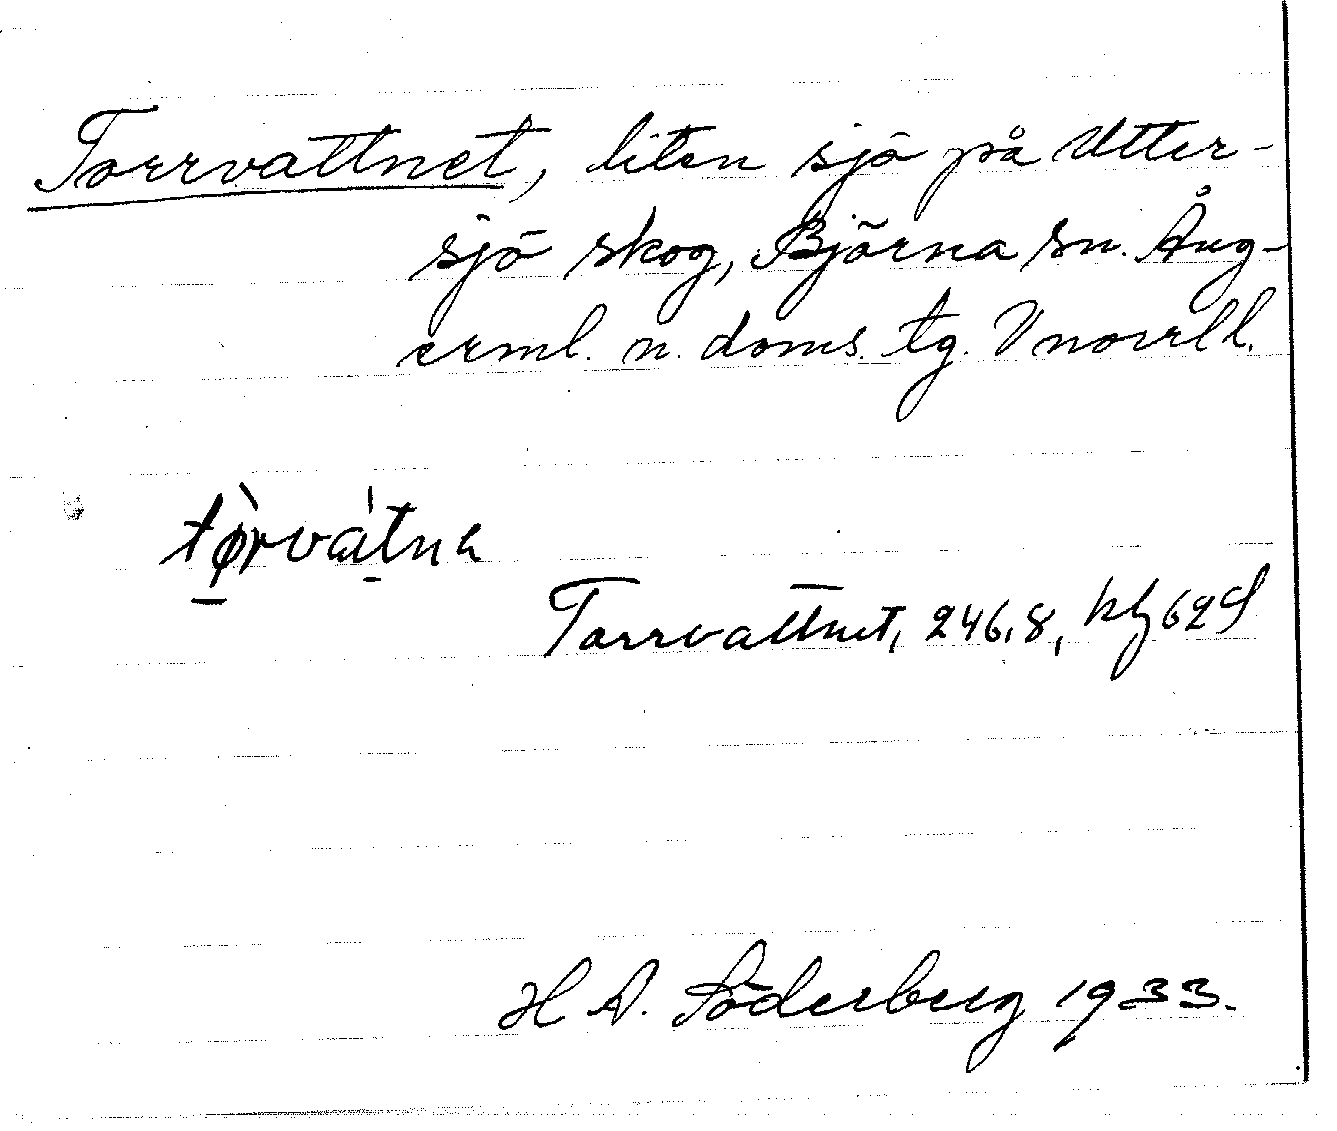 Torrvattnet, liten sjö på Utter-
sjö skog, Björna sn. Ång-
erml. n. doms. tg. Vnorrl l.
tø̀rvátnɐ
Torrvattnet, 246,8, kbl 62 S
H A. Söderberg 1933.